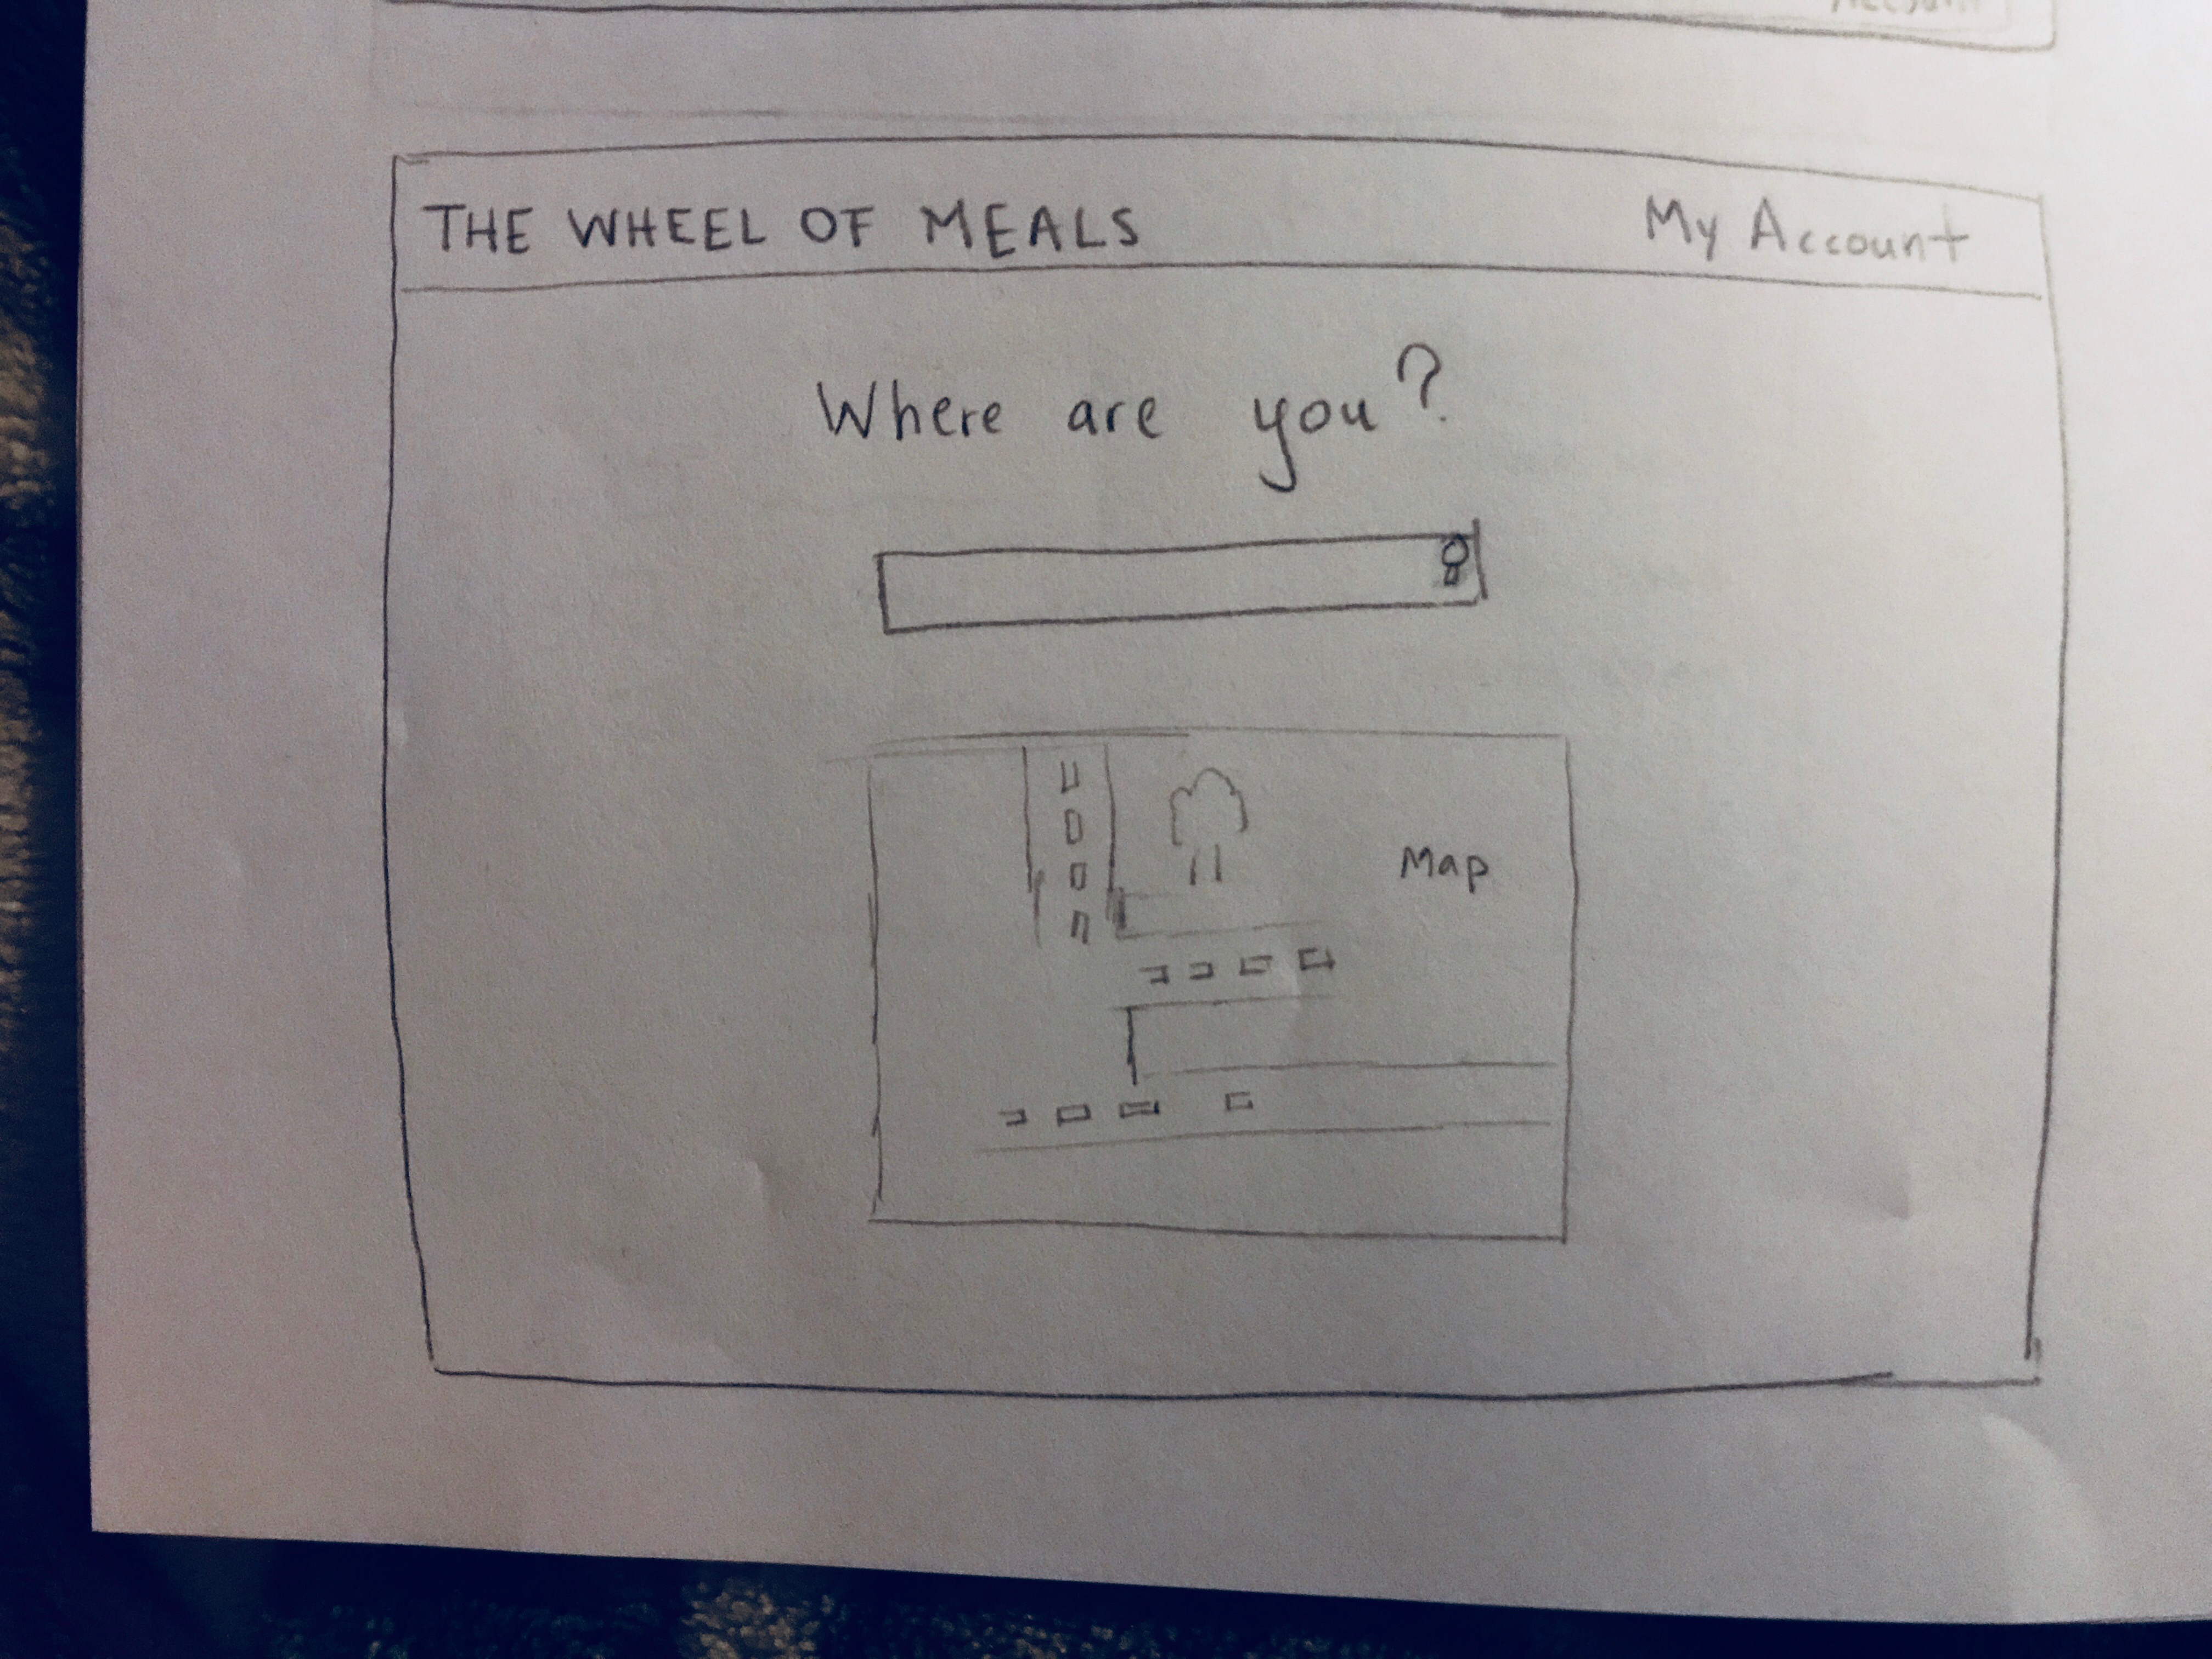 Account
THE WHEEL OF MEALS
My Account
Where are you?
Map